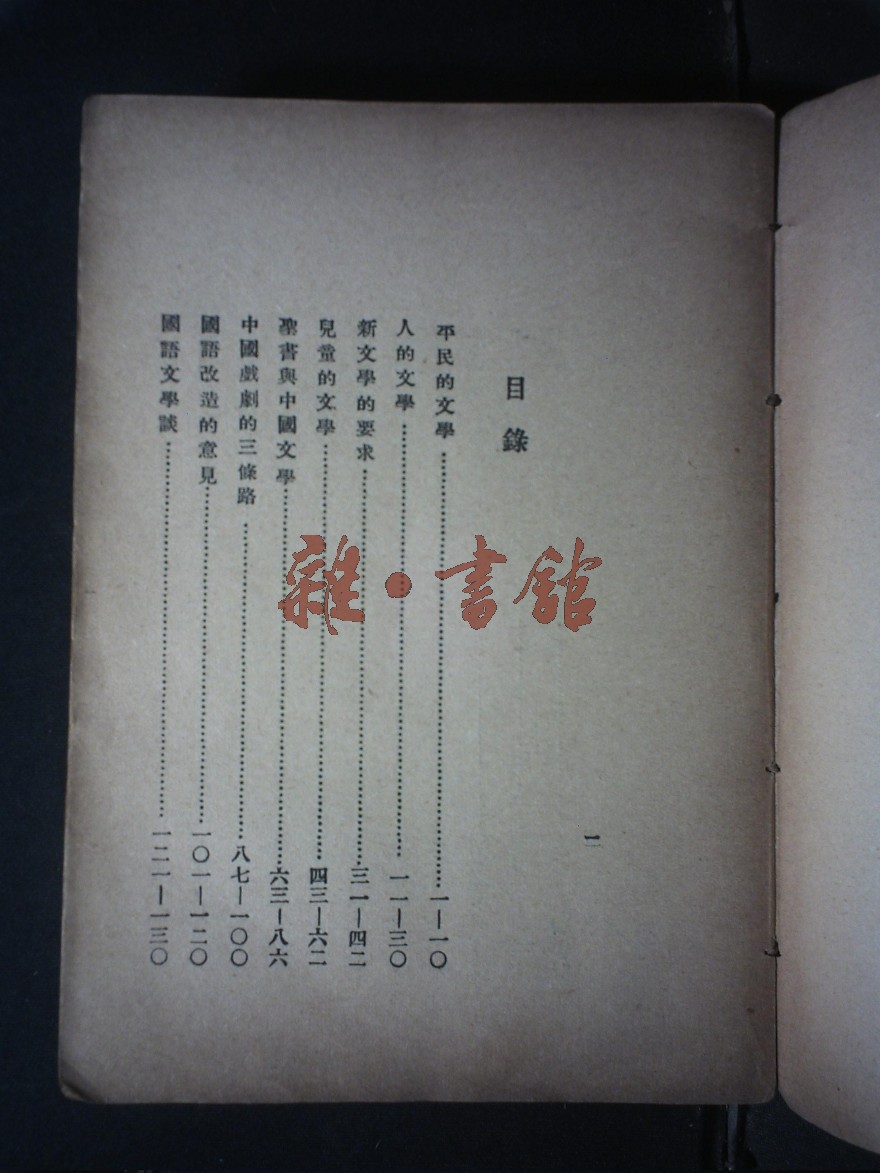 目錄
平民的文學………一—一〇
人的文學………一一—三〇
新文學的要求………三一—四二
兒童的文學………四三—六二
聖書與中國文學………六三—八六
中國戲劇的三條路………八七—一〇〇
國語改造的意見………一〇一—一二〇
國語文學談………一二一—一三〇
二
雜·書館